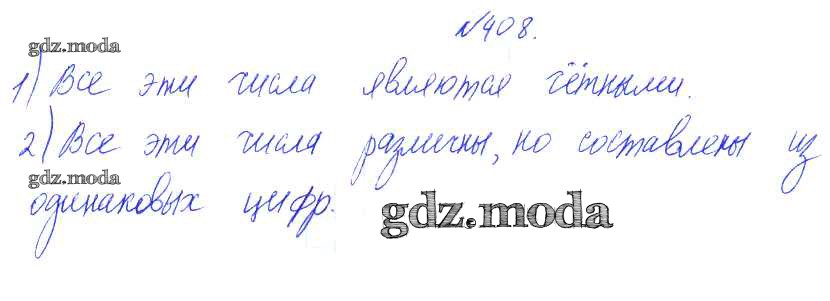 №408.
gdz.moda
1) Все эти числа являются чётными.
2) Все эти числа различны, но составлены из
gdz.moda
одинаковых цифр.
gdz.moda